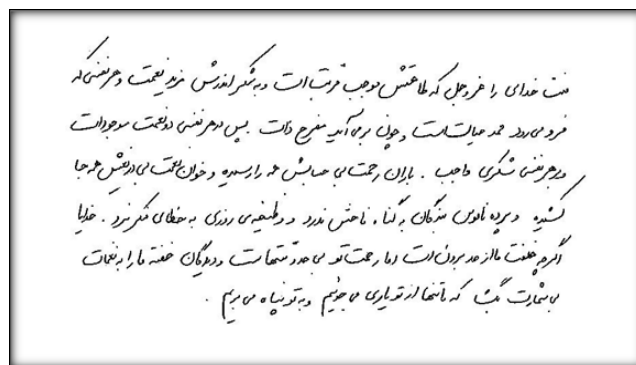 منت خدای را عزوجل که طاعتش موجب قربت است و به شکر اندرش مزید نعمت و هر نفسی که
فرو می‌رود ممد حیات است و چون بر می‌آید مفرح ذات بس در هر نفسی دو نعمت موجود است
و بر هر نفسی شکری واجب . باران رحمت بی حسابش همه را رسیده و خوان نعمت بی دریغش همه جا
کشیده و پرده ناموس بندگان به گناه فاحش ندرد و وظیفه‌ی روزی به خطای منکر نبرد . خدایا
اگرچه غفلت ما از حد بیرون است اما رحمت تو بی حد و منتهاست و دیدگان خفته ما را به نعمات
بی شمارت بگشا که تنها از تو یاری می جوئیم و به تو پناه می بریم .